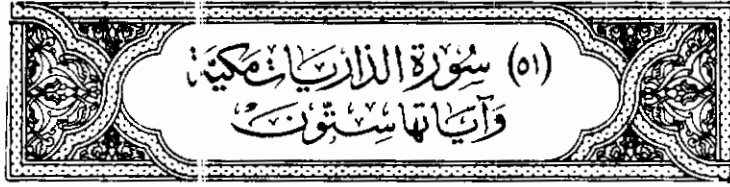 (٥١) سُورَة الذاريَات مَكيّة
وَآيَاتها سِتّونَ